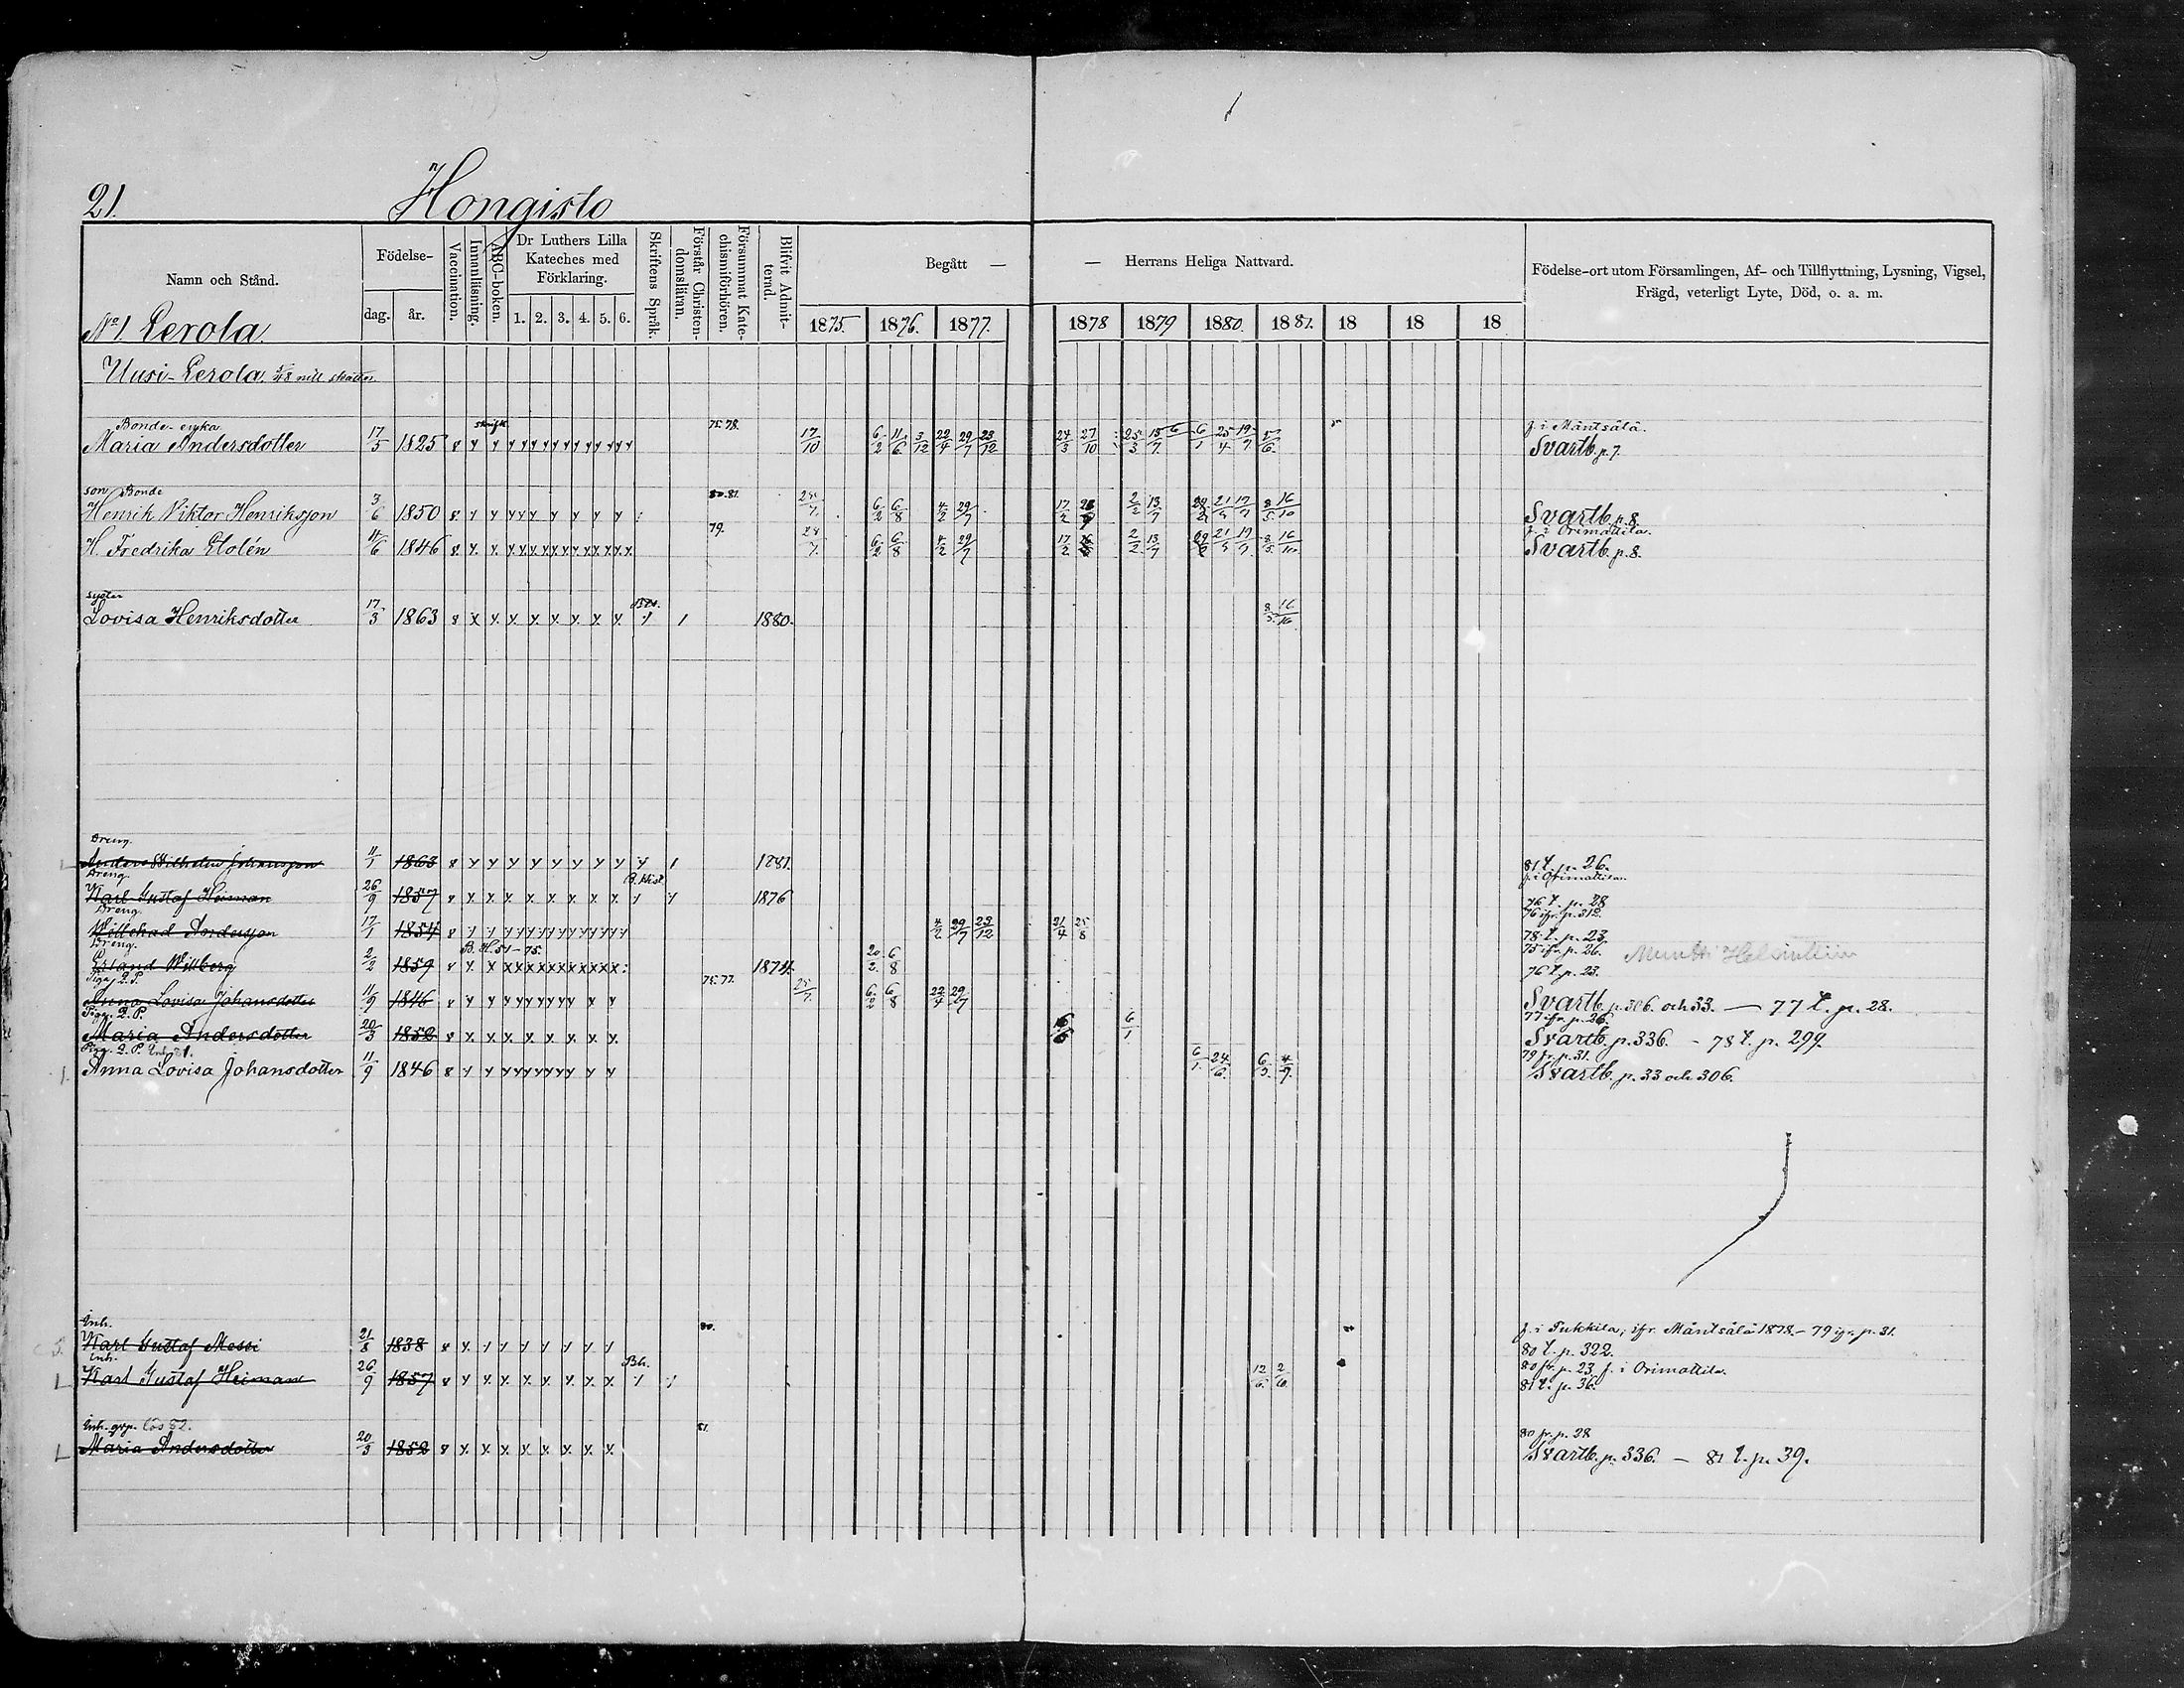 21. Hongisto
Namn och Stånd.
Födelse-
dag. år.
Vaccination.
Innanläsning.
ABC-boken.
Dr Luthers Lilla Kateches med Förklaring.
1. 2. 3. 4. 5. 6.
Skriftens Språk.
Förstår Christendomsläran.
Försummat Katechismiförhören.
Blifvit Admitterad.
Begått — — Herrans Heliga Nattvard.
1875. 1876. 1877. 1878 1879 1880. 1881. 18 18 18
Födelse-ort utom Församlingen, Af- och Tillflyttning, Lysning, Vigsel,
Frägd, veterligt Lyte, Död, o. a. m.
No 1. Perola.
Uusi-Perola.
Bonde-enka 75.78. f. i Mäntsälä.
Maria Andersdotter 17/5 1825 17/10 6/2 11/6 3/12 22/4 29/7 23/12 24/3 27/10 25/3 6/1 25/4 19/7 Svartb. p. 7.
son Bonde 80.81.
Henrik Viktor Henriksson 3/6 1850 6/2 6/8 4/2 29/7 2/2 13/7 8/5 16/10 Svartb. p. 8.
79. f. i Orimattila.
H. Fredrika Elolén 1846 6/2 6/8 4/2 29/7 2/2 13/7 8/5 16/10 Svartb. p. 8.
syster
Lovisa Henriksdotter 17/3 1863 1880. 8/5 16/10
Dreng.
Anders Wilhelm Johansson 11/1 1863 1881. 81 t. p. 26.
Dreng. B. Hist. f. i Orimattila.
Karl Gustaf Heiman 26/9 1857 1876 76 t. p. 28
Dreng. 76 ifr. p. 312.
Willehad Andersson 17/1 1854 4/2 29/7 23/12 21/4 25/8 78 t. p. 23
Dreng. B. H. 51-75. 75 ifr. p. 26.
Erland Willberg 2/2 1859 1874. 20/2 6/8 76 t. p. 23.
Piga Q. P. 75.77.
Anna Lovisa Johansdotter 11/9 1846 25/7 6/2 6/8 22/4 29/7 Svartb. p. 306. och 33. — 77 t. p. 28.
Piga. Q. P. 77 ifr. p. 26.
Maria Andersdotter 20/3 1852 6/1 Svartb. p. 336. - 78 t. p. 299.
Piga. Q. P. Inh. 81. 79 fr. p. 31.
1. Anna Lovisa Johansdotter 11/9 1846 6/1 24/6 Svartb. p. 33 och 306.
Inh. 80. f. i Pukkila, ifr. Mäntsälä 1878.- 79 ifr. p. 31.
Karl Gustaf Messi 21/8 1838 80 t. p. 322.
Inh. B.h. 80 fr. p. 23, f. i Orimattila.
Karl Gustaf Heiman 26/9 1857 12/6 2/10 81 t. p. 36.
Inh. Lös 82. 81. 80 fr. p. 28
Maria Andersdotter 20/3 1852 Svartb. p. 336. — 81 t. p. 39.